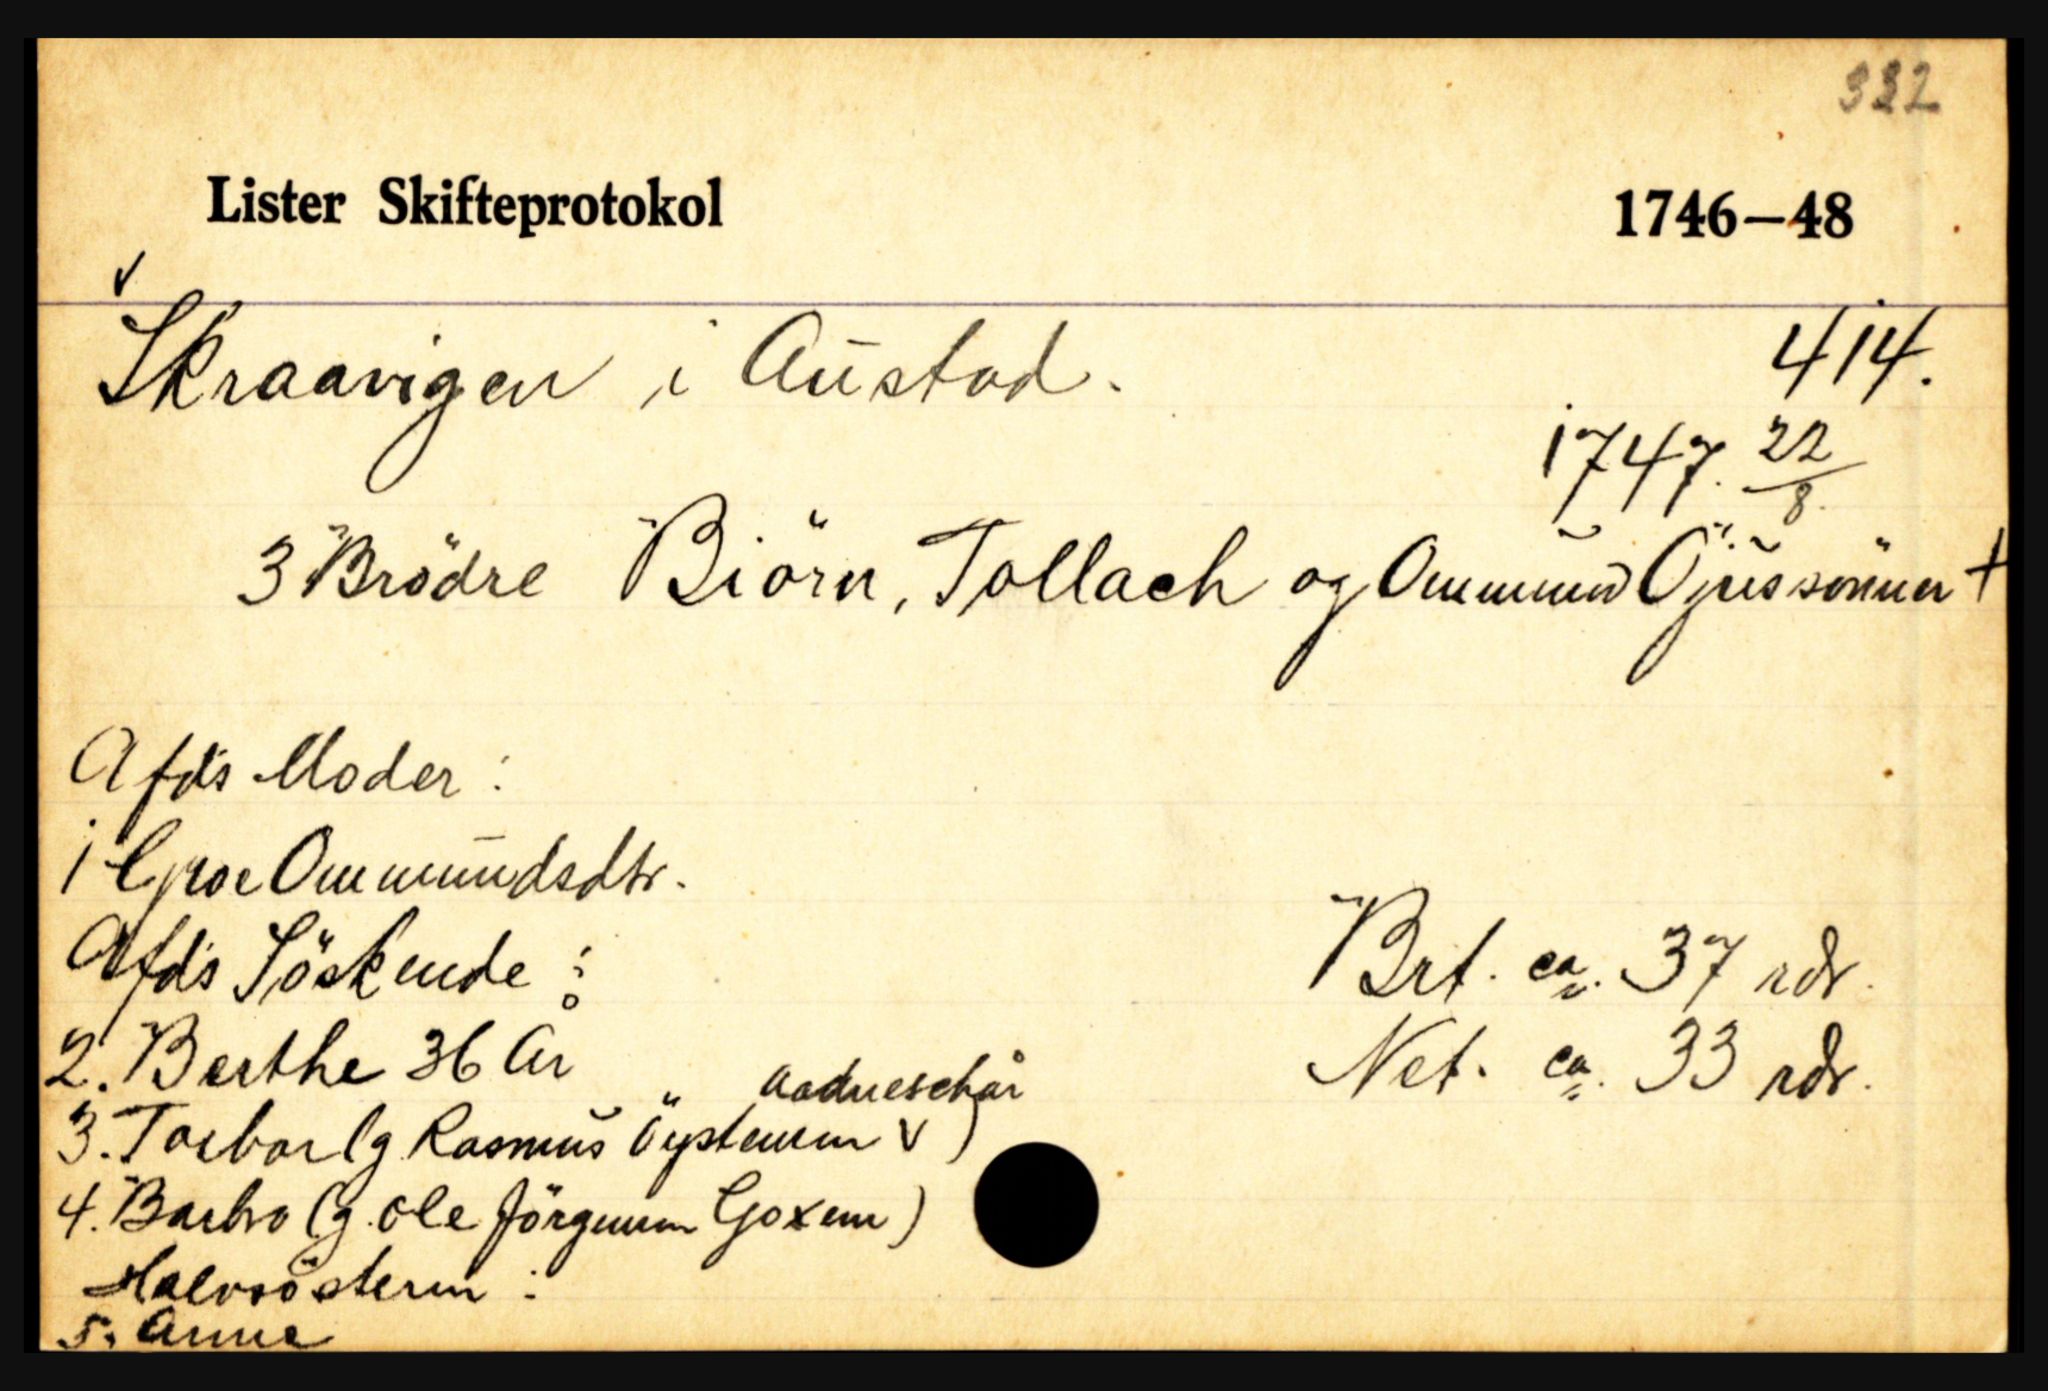 332
Lister Skifteprotokol 1746–48
Skraavigen i Austad. 414.
1747. 22/8.
3 Brödre Biörn, Tollach og Ommund Öjussönner +
Afd's Moder:
1 Groe Ommundsdtr.
Afd's Söskende:
2. Berthe 36 År
Brt. ca. 37 rdr.
Net. ca. 33 rdr.
3. Torbor (g. Rasmus Öystensen v )
4. Barbro (g. Ole Jörgensen Goxem)
Halvsösteren:
5. Anne